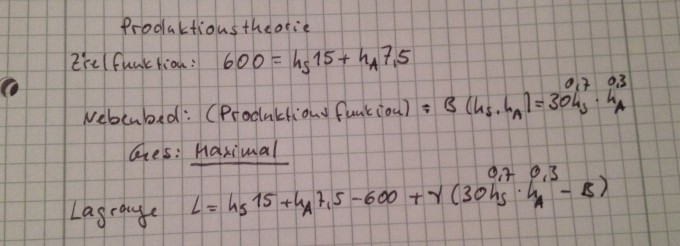 Produktionstheorie
Zielfunktion: 600 = hₛ15 + h_A 7,5
Nebenbed: (Produktionsfunktion) = B (hₛ, h_A) = 30hₛ^0,7 · h_A^0,3
Ges: Maximal
Lagrange L = hₛ15 + h_A 7,5 - 600 + γ (30hₛ^0,7 · h_A^0,3 - B)